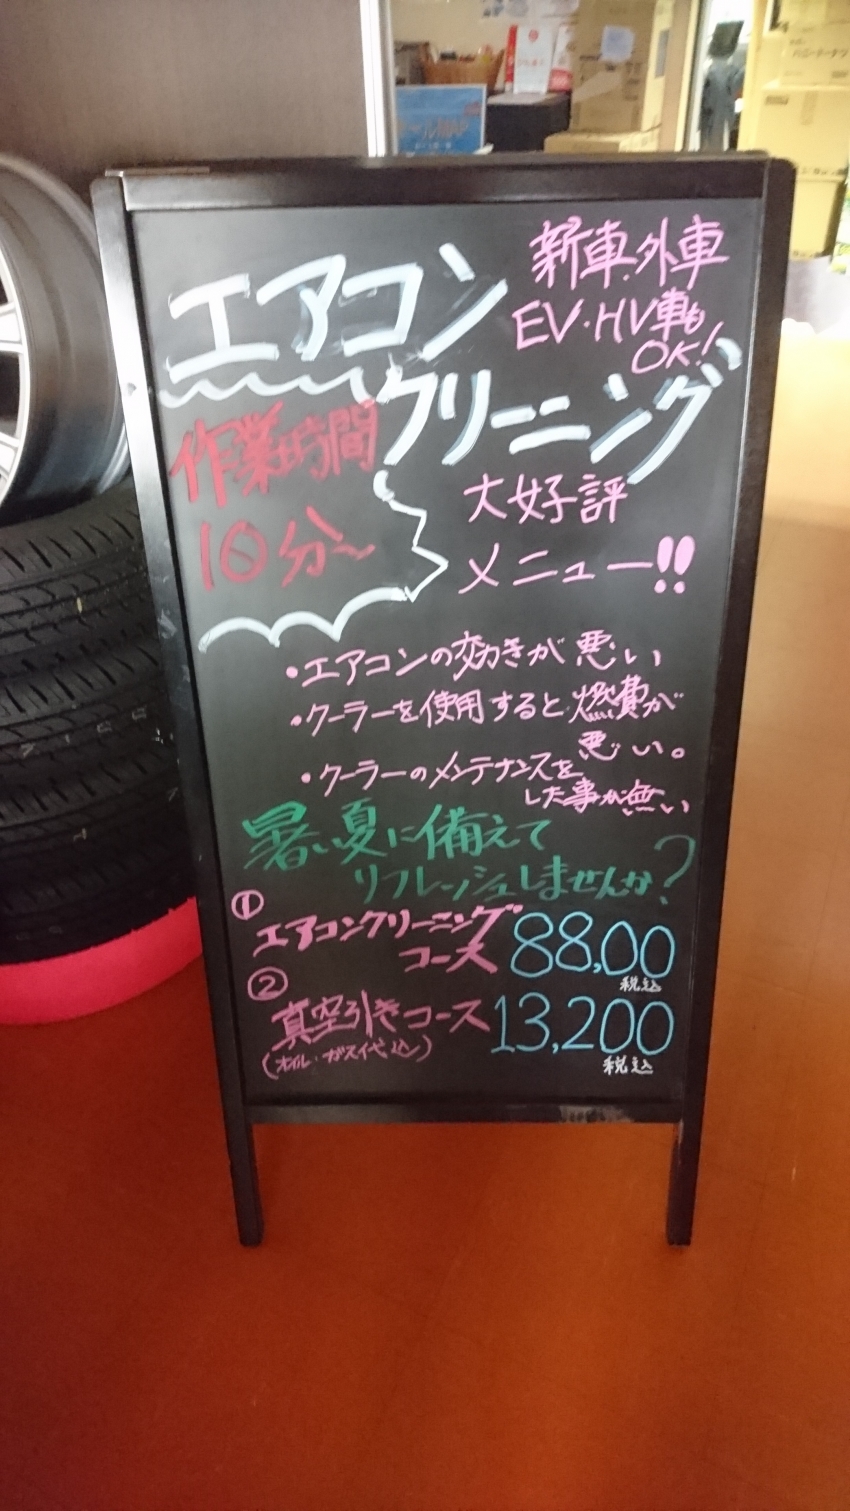 新車・外車
EV・HV車も
OK!
エアコン
クリーニング
作業時間
10分〜
大好評
メニュー!!
・エアコンの効きが悪い
・クーラーを使用すると燃費が
悪い。
・クーラーのメンテナンスを
した事が無い
暑い夏に備えて
リフレッシュしませんか?
①
エアコンクリーニング
コース 88,00
税込
②
真空引きコース 13,200
(オイル・ガス代込) 税込